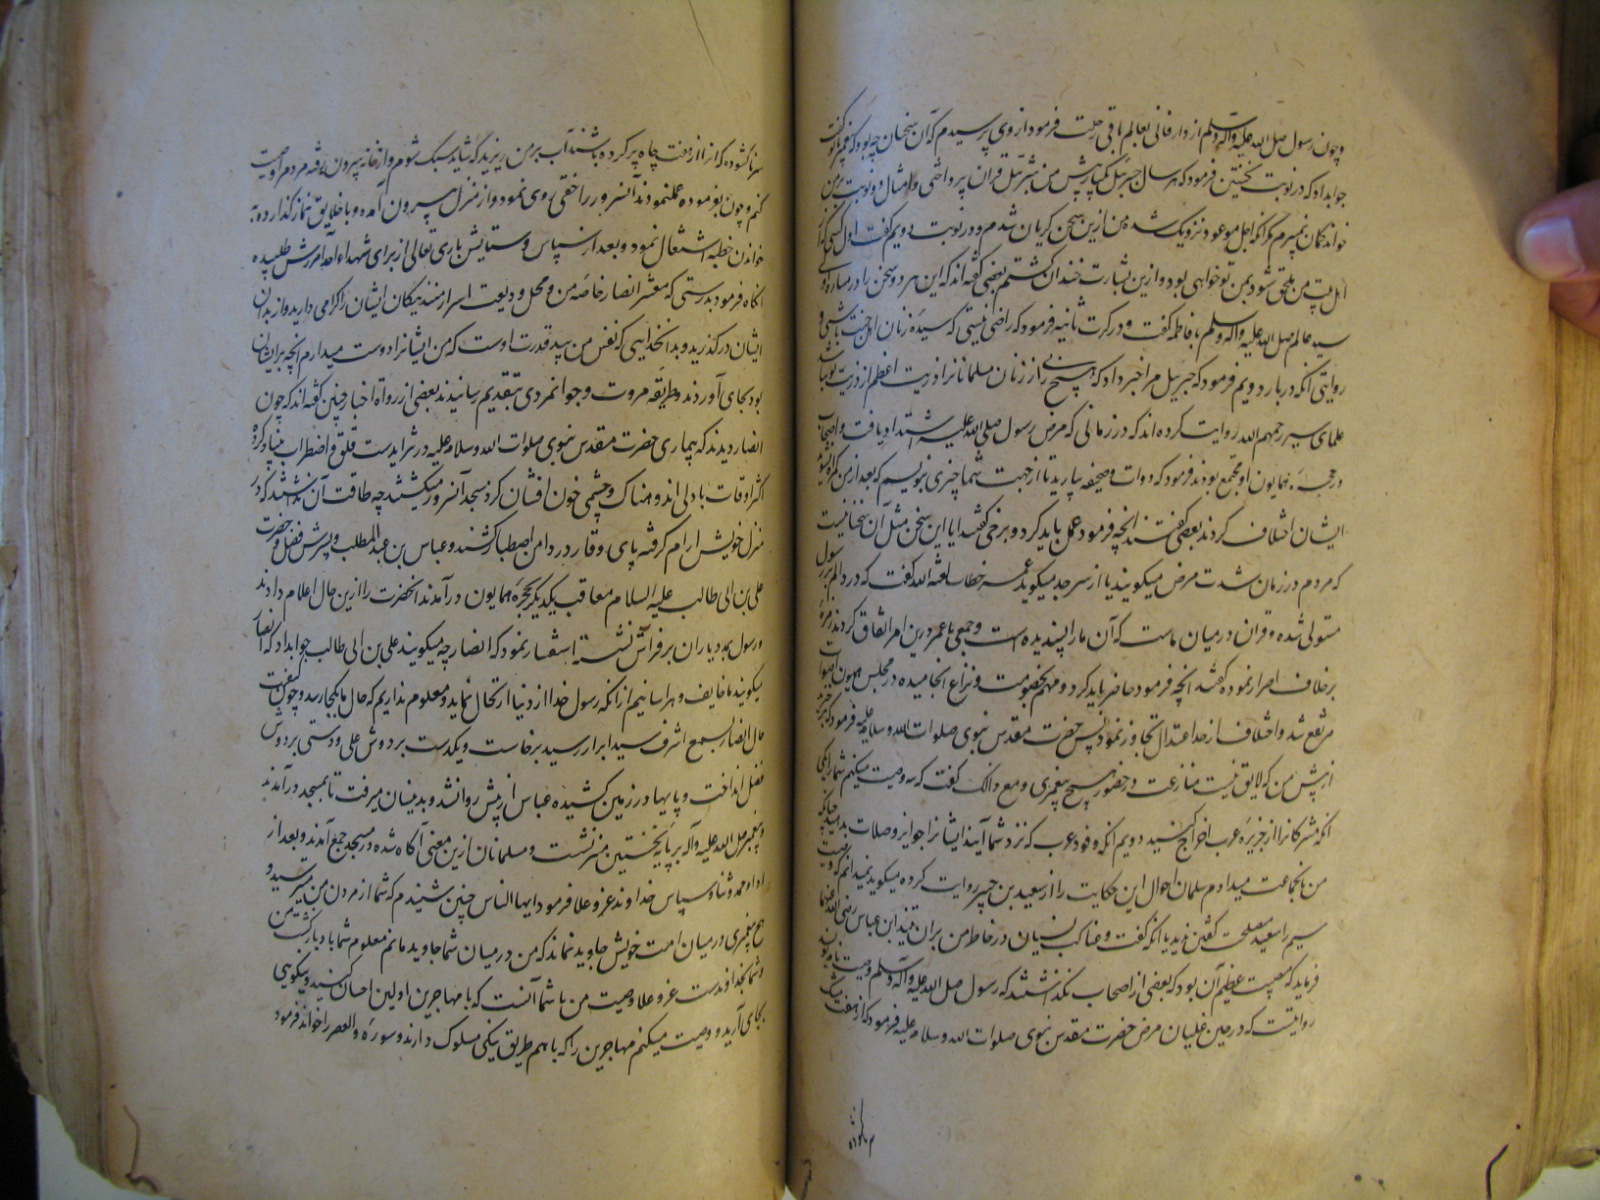 و چون رسول صلی الله علیه وآله وسلم از دار فانی بعالم باقی رحلت فرمود از وی پرسیدم که آن سخنان چه بود که پیغمبر با تو گفت
جواب داد که در نوبت نخستین فرمود که هر سال جبرئیل یکبار پیش من بتنزیل قران پرداختی و امثال دو نوبت بر من
خواند گمان نمیبرم مگر آنکه اجل موعود نزدیک شده من ازین سخن گریان شدم و در نوبت دویم گفت اول کسی که از
اهل بیت من ملحق شود بمن تو خواهی بود و ازین بشارت خندان گشتم بعضی گفته اند که این هر دو سخن را در مساره
سید عالم صلی الله علیه وآله وسلم با فاطمه گفت و در کرت ثانیه فرمود که راضی نیستی که سیده زنان اهل جنت باشی و
روایتی آنکه در بار دویم فرمود که جبرئیل مرا خبر داد که هیچ زنی را از زنان مسلمانان ذریت اعظم از ذریت تو نباشد
علمای سیر رحمهم الله روایت کرده اند که در زمانی که مرض رسول صلی الله علیه اشتداد یافت و اصحاب
در حجره همایون او مجتمع بودند فرمود که دوات و صحیفه بیارید تا از جهت شما چیزی بنویسم که بعد از من گمراه نشوید
ایشان اختلاف کردند بعضی گفتند آنچه فرمود عمل باید کرد و برخی گفتند آیا این سخن مثل آن سخنانیست
که مردم در زمان شدت مرض میگویند یا از سر جد میگوید عمر خطاب لعنه الله گفت که درد الم بر رسول
مستولی شده و قران در میان ماست که آن ما را پسندیده است و جمعی با عمر درین امر اتفاق کردند و زمره
بر خلاف اصرار نموده گفتند آنچه فرمود حاضر باید کرد و مهم بخصومت و نزاع انجامیده در مجلس همیون اصوات
مرتفع شد و اختلاف از حد اعتدال تجاوز نمود پس حضرت مقدس نبوی صلوات الله و سلامه علیه فرمود که برخیزید
از پیش من که لایق نیست منازعت در حضور هیچ پیغمبری و مع ذالک گفت که سه وصیت میکنم شما را یکی
آنکه مشرکانرا از جزیره عرب اخراج کنید دویم آنکه وفود عرب که نزد شما آیند ایشانرا جوایز و صلات بدهید چنانکه
من بانجماعت میدادم سلمان احول این حکایت را از سعید بن جبیر روایت کرده میگوید نمیدانم که وصیت
سیم را سعید مصلحت گفتن ندید یا آنکه گفت و عناکب نسیان در خاطر من بران تنید ابن عباس رضی الله عنهما
فرماید که مصیبت عظیم آن بود که بعضی از اصحاب نگذاشتند که رسول صلی الله علیه وآله وسلم وصیت نامه بنویسد
روایتست که در حین غلیان مرض حضرت مقدس نبوی صلوات الله و سلامه علیه فرمود که از هفت مشک
سر ناگشوده که آنرا از هفت چاه پر کرده باشند آب بر من ریزید که شاید سبک شوم و از خانه بیرون رفته مردم را وصیت
کنم و چون بفرموده عمل نمودند آنسرور را خفتی روی نمود و از منزل بیرون آمده و با خلایق نماز گذارده
خواندن خطبه اشتغال نمود و بعد از سپاس و ستایش باری تعالی از برای شهداء احد آمرزش طلبیده
آنگاه فرمود بدرستی که معشر انصار خاصه من و محل ودیعت اسرار منند نیکان ایشان را گرامی دارید و از بدان
ایشان در گذرید و بدانخدایی که نفس من بید قدرت اوست که من ایشانرا دوست میدارم آنچه بر ایشان
بود بجای آوردند و طریقه مروت و جوانمردی بتقدیم رسانیدند بعضی از رواة اخبار چنین گفته اند که چون
انصار دیدند که بیماری حضرت مقدس نبوی صلوات الله وسلامه علیه در تزایدست قلق و اضطراب بنیاد کرده
اکثر اوقات با دلی اندوهناک و چشمی خون افشان گرد مسجد آنسرور میگشتند چه طاقت آن نداشتند که در
منزل خویش ارام گرفته پای وقار در دامن اصطبار کشند و عباس بن عبدالمطلب و پسرش فضل و حضرت
علی بن ابی طالب علیه السلام معاقب یکدیگر بحجره همایون در آمدند آنحضرت را ازین حال اعلام دادند
و رسول مجد یاران بر فراش نشسته استفسار نمود که انصار چه میگویند علی بن ابی طالب جواب داد که انصار
میگویند ما خایف و هراسانیم از آنکه رسول خدا از دنیا ارتحال نماید و معلوم نداریم که حال ما بکجا رسد و چون کیفیت
حال انصار بسمع اشرف سید ابرار رسید برخاست و یکدست بر دوش علی و دستی بر دوش
فضل انداخت و پایها در زمین کشیده عباس از پیش روانشد و بدینسان میرفت تا بمسجد در آمدند
و پیغمبر صلی الله علیه وآله بر پایه نخستین منبر نشست و مسلمانان ازین معنی آگاه شده در مسجد جمع آمدند و بعد از
اداء حمد و ثنا و سپاس خداوند عز و علا فرمود ایها الناس چنین شنیدم که شما از مردن من میترسید و
هیچ پیغمبری در میان امت خویش جاوید نماند که من در میان شما جاوید مانم معلوم شما باد بازگشت من
و شما بخداوندست عز و علا وصیت من با شما آنست که با مهاجرین اولین احسان کنید و نیکویی
بجای آرید و وصیت میکنم مهاجرین را که با هم طریق نیکی سلوک دارند و سوره والعصر را خواند فرمود